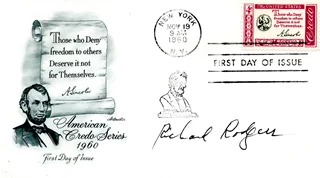 Those who Deny
freedom to others
Deserve it not
for Themselves.
A. Lincoln
American
Credo Series
1960
First Day of Issue
NEW YORK
NOV 19
9 AM
1960
N.Y.
FIRST DAY OF ISSUE
Those who Deny
freedom to others
Deserve it not
for Themselves
A. Lincoln
Richard Rodgers